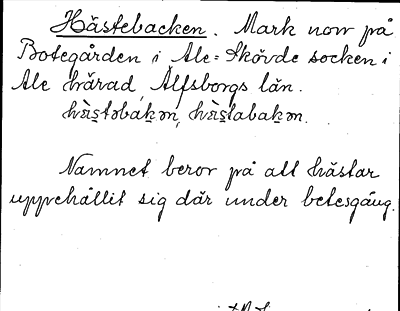 Hästebacken. Mark norr på
Botegården i Ale=Skövde socken i
Ale härad, Älfsborgs län.
hàstəbàkən, hàstabakən.
Namnet beror på att hästar
uppehållit sig där under betesgång.